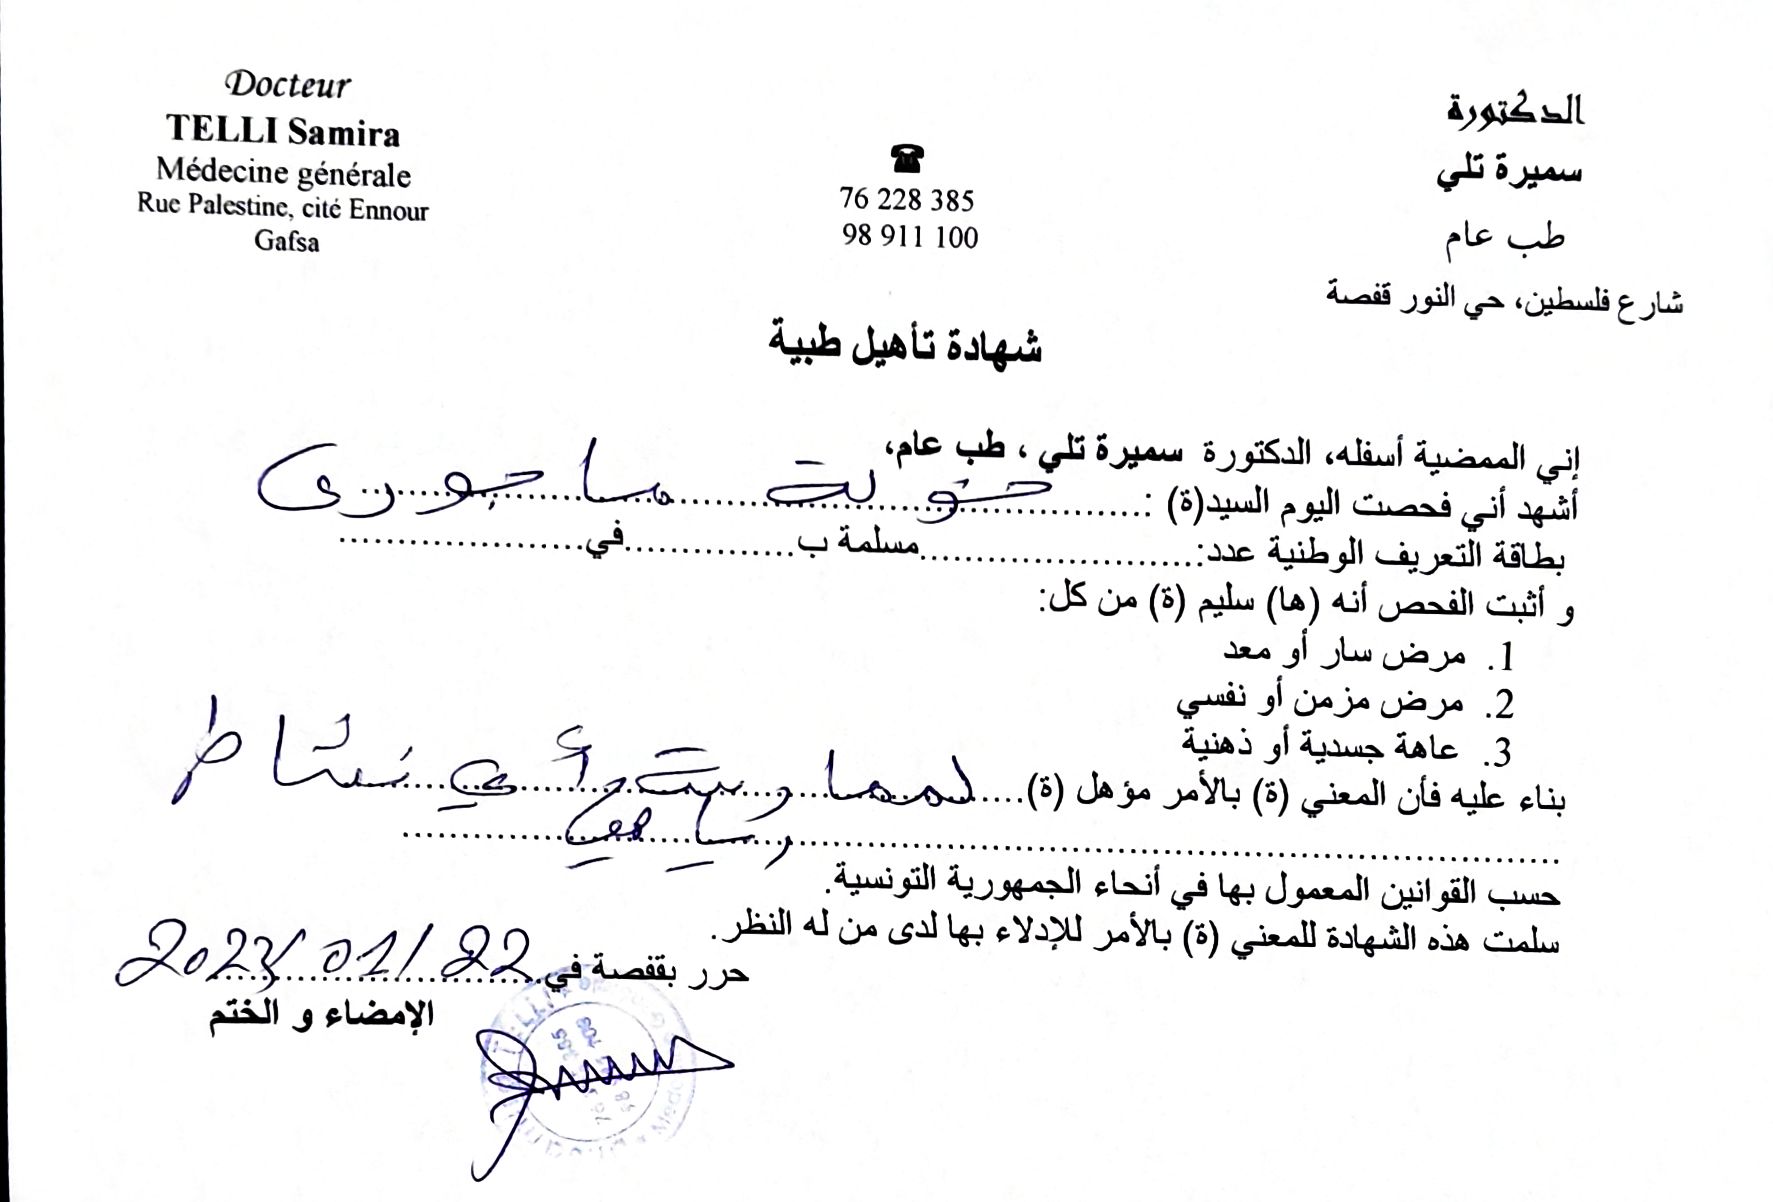 Docteur
TELLI Samira
Médecine générale
Rue Palestine, cité Ennour
Gafsa
76 228 385
98 911 100
الدكتورة
سميرة تلي
طب عام
شارع فلسطين، حي النور قفصة
شهادة تأهيل طبية
إني الممضية أسفله، الدكتورة سميرة تلي ، طب عام،
أشهد أني فحصت اليوم السيد(ة) : خولة ماجوري
بطاقة التعريف الوطنية عدد:..........مسلمة ب..........في..........
و أثبت الفحص أنه (ها) سليم (ة) من كل:
1. مرض سار أو معد
2. مرض مزمن أو نفسي
3. عاهة جسدية أو ذهنية
بناء عليه فأن المعني (ة) بالأمر مؤهل (ة) لممارسة أي نشاط
رياضي
حسب القوانين المعمول بها في أنحاء الجمهورية التونسية.
سلمت هذه الشهادة للمعني (ة) بالأمر للإدلاء بها لدى من له النظر.
حرر بقفصة في 22/01/2023
الإمضاء و الختم